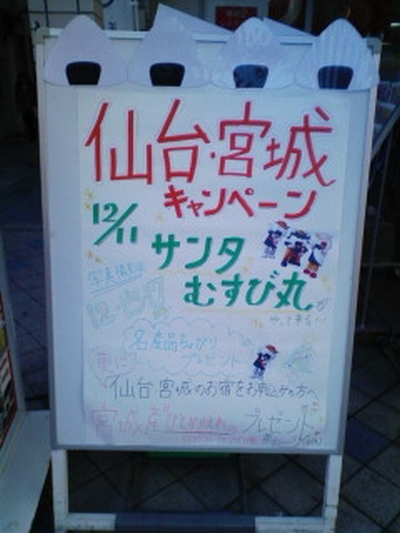 仙台・宮城
キャンペーン
12/11
サンタ
むすび丸が
やって来る～
名産品ちょびり
プレゼント
更に
仙台宮城のお宿をお申込みの方へ
宮城産ひとめぼれ プレゼント